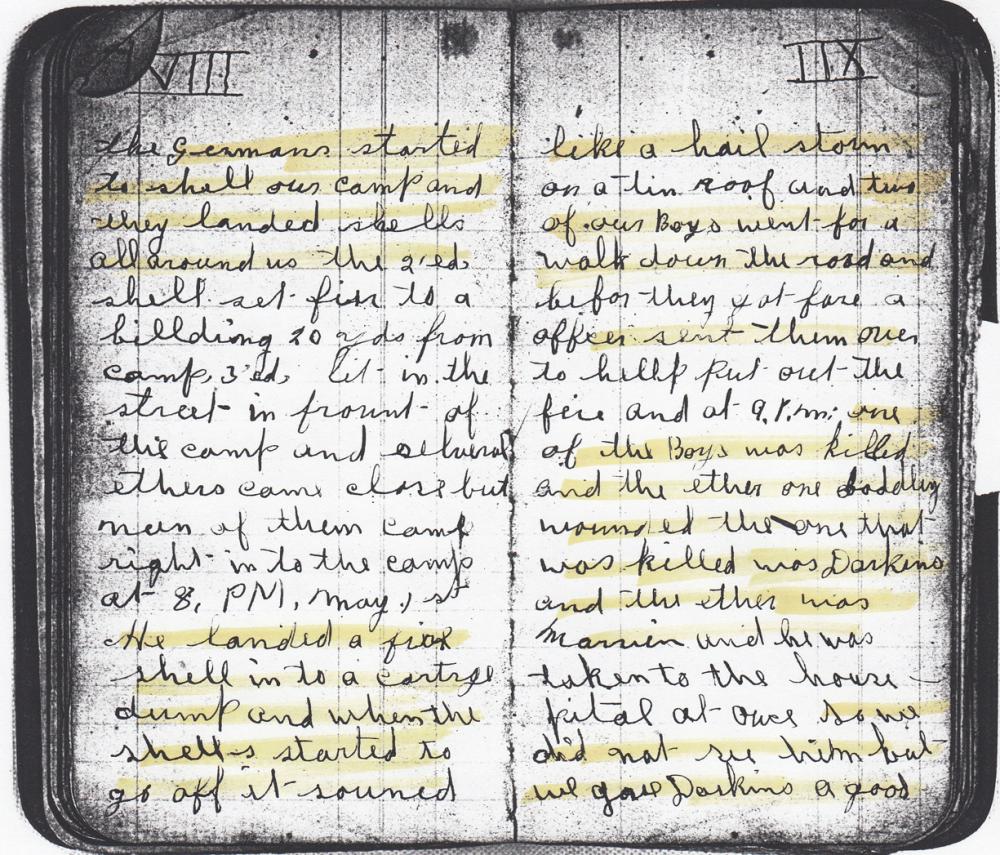 VIII
the Germans started
to shell our camp and
they landed shells
all around us the 2'ed
shell set fier to a
billding 20 yds from
camp, 3'ed, lit in the
street in frount of
the camp and selveral
ethers came close but
nun of them camp
right in to the camp
at 8, PM, May, 1 st
He landed a fier
shell in to a cartrge
dump and when the
shells started to
go off it souned
IIX
like a hail storm
on a tin roof and two
of our Boys went for a
walk down the road and
befor they got fare a
officer sent them over
to hellp put out the
fire and at 9.P.m: one
of the Boys was killed
and the ether one baddley
wounded the one that
was killed was Darkins
and the ether was
and he was
taken to the hous-
pital at once so we
did not see him but
we gave Darkins a good